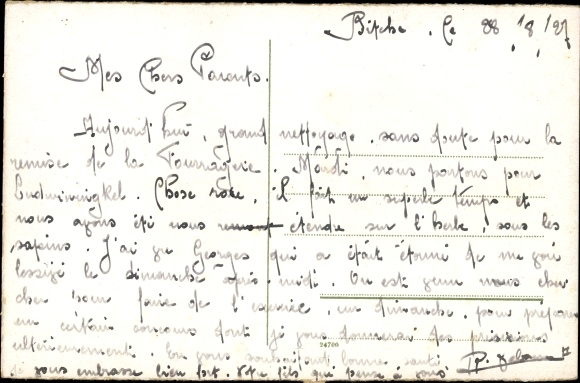 Bitche, le 28/8/27
Mes Chers Parents.
Aujourd'hui, grand nettoyage, sans doute pour la
remise de la Fourragère. Mardi, nous partons pour
Ludwiwinkel. Chose rare, il fait un superbe temps et
nous avons été nous étendre sur l'herbe, sous les
sapins. J'ai vu Georges qui a était étonné de me voir
le dimanche après-midi. On est venu nous cher
cher pour faire de l'escrime, un dimanche, pour préparer
un certain concours dont je vous donnerai des précisions
ultérieurement. En vous souhaitant bonne santé,
je vous embrasse bien fort. Votre fils qui pense à vous